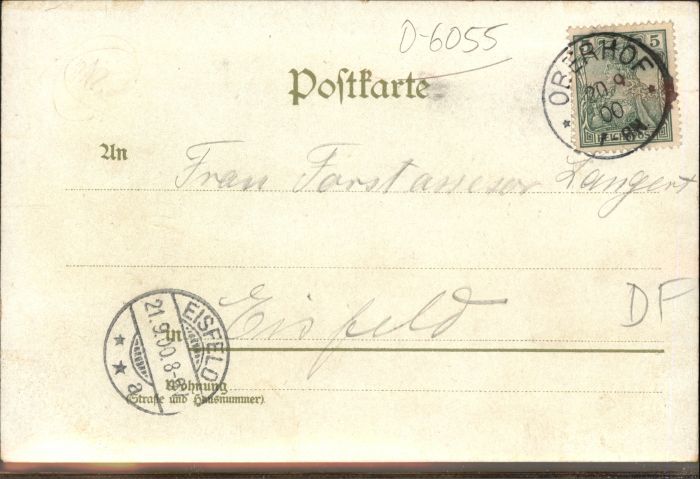 D-6055
Postkarte
5
OBERHOF
20.9
00
8N.
An
Frau Forstassessor Langert
DF
EISFELD
21.9.00.8-9
a
in Eisfeld
Wohnung
(Straße und Hausnummer).